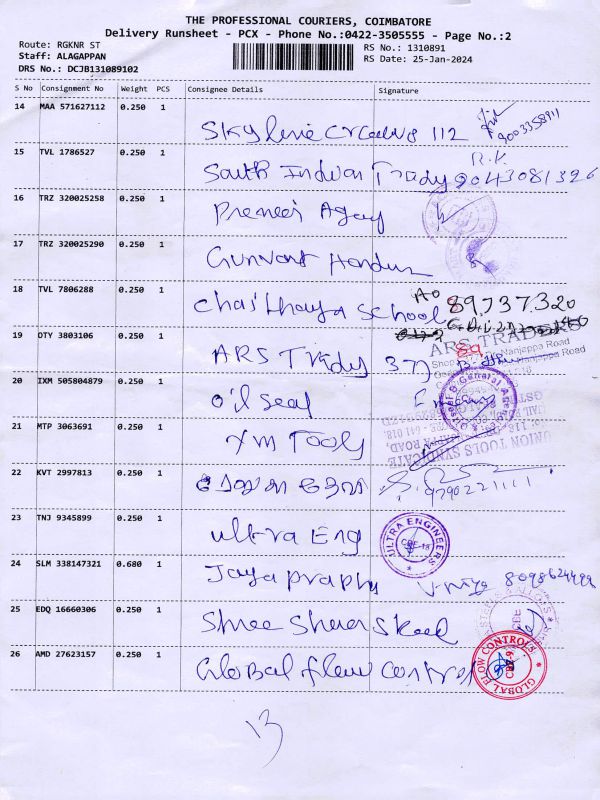 THE PROFESSIONAL COURIERS, COIMBATORE
Delivery Runsheet - PCX - Phone No.:0422-3505555 - Page No.:2
Route: RGKNR ST
RS No.: 1310891
Staff: ALAGAPPAN
RS Date: 25-Jan-2024
DRS No.: DCJB131089102
S No Consignment No Weight PCS Consignee Details Signature
14 MAA 571627112 0.250 1
112 9003358911
15 TVL 1786527 0.250 1
R.K
South Indian Trady 9043081326
16 TRZ 320025258 0.250 1
Premier Agay
17 TRZ 320025290 0.250 1
Gunvant
18 TVL 7806288 0.250 1
AO
Chaithaya School 89,737.320
19 OTY 3803106 0.250 1
ARS TRAD
ARS Trady 37) 89
Nanjappa Road
20 IXM 505804879 0.250 1
Oil Seal
21 MTP 3063691 0.250 1
UNION TOOLS SYNDICATE
YM Tools
22 KVT 2997813 0.250 1
9790221111
23 TNJ 9345899 0.250 1
Ultra Eng
ULTRA ENGINEERS
CBE-18
24 SLM 338147321 0.680 1
Jaya Prapha
25 EDQ 16660306 0.250 1
Shree
26 AMD 27623157 0.250 1
Global flow control
GLOBAL FLOW CONTROLS
CBE-9
13